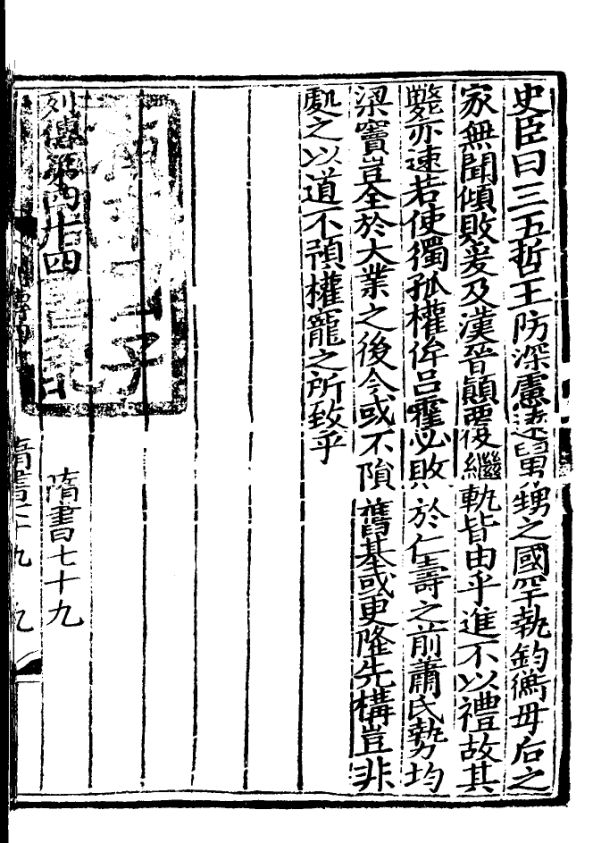 史臣曰三五哲王防深慮遠舅甥之國罕執鈞衡母后之
家無聞傾敗爰及漢晉顛覆繼軌皆由乎進不以禮故其
斃亦速若使獨孤權侔吕霍必敗於仁壽之前蕭氏勢均
梁竇豈全於大業之後今或不隕舊基或更隆先構豈非
處之以道不預權寵之所致乎
列傳第四十四
隋書七十九